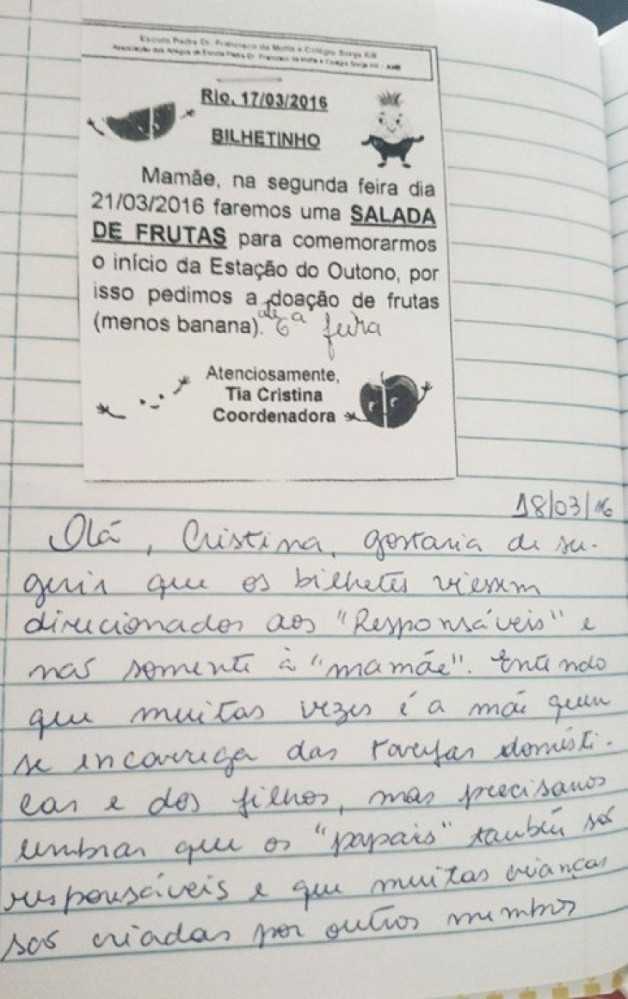 Escola Padre Dr. Francisco da Motta e Colégio Sonja Kill
Rio, 17/03/2016
BILHETINHO
Mamãe, na segunda feira dia
21/03/2016 faremos uma SALADA
DE FRUTAS para comemorarmos
o início da Estação do Outono, por
isso pedimos a doação de frutas
(menos banana). até 6ª feira
Atenciosamente,
Tia Cristina
Coordenadora
18/03/16
Olá, Cristina, gostaria de su-
gerir que os bilhetes viessem
direcionados aos "Responsáveis" e
não somente à "mamãe". Entendo
que muitas vezes é a mãe quem
se encarrega das tarefas domésti-
cas e dos filhos, mas precisamos
lembrar que os "papais" também são
responsáveis e que muitas crianças
são criadas por outros membros